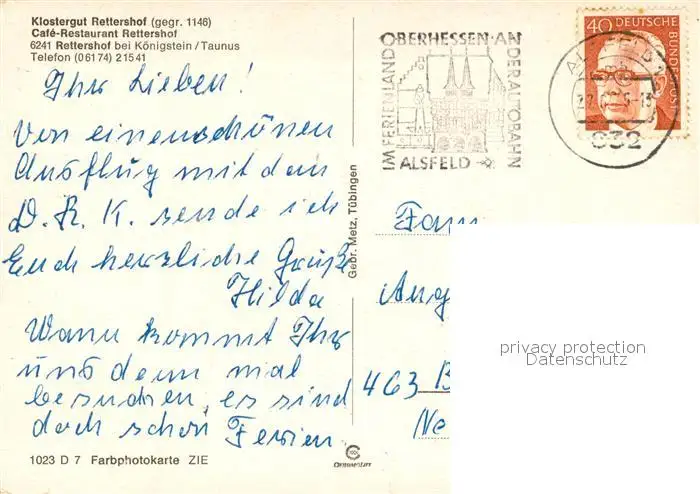 Klostergut Rettershof (gegr. 1146)
Café-Restaurant Rettershof
6241 Rettershof bei Königstein / Taunus
Telefon (06174) 21541
Ihr Lieben!
Von einen schönen
Ausflug mit dem
D. R. K. sende ich
Euch herzliche Grüße
Hilda
Wann kommt Ihr
uns denn mal
besuchen, es sind
doch schon Ferien
1023 D 7 Farbphotokarte ZIE
Gebr. Metz, Tübingen
IM FERIENLAND OBERHESSEN · AN DER AUTOBAHN
ALSFELD
40 DEUTSCHE BUNDESPOST
Fam
Aug
463 B
Ne
privacy protection
Datenschutz